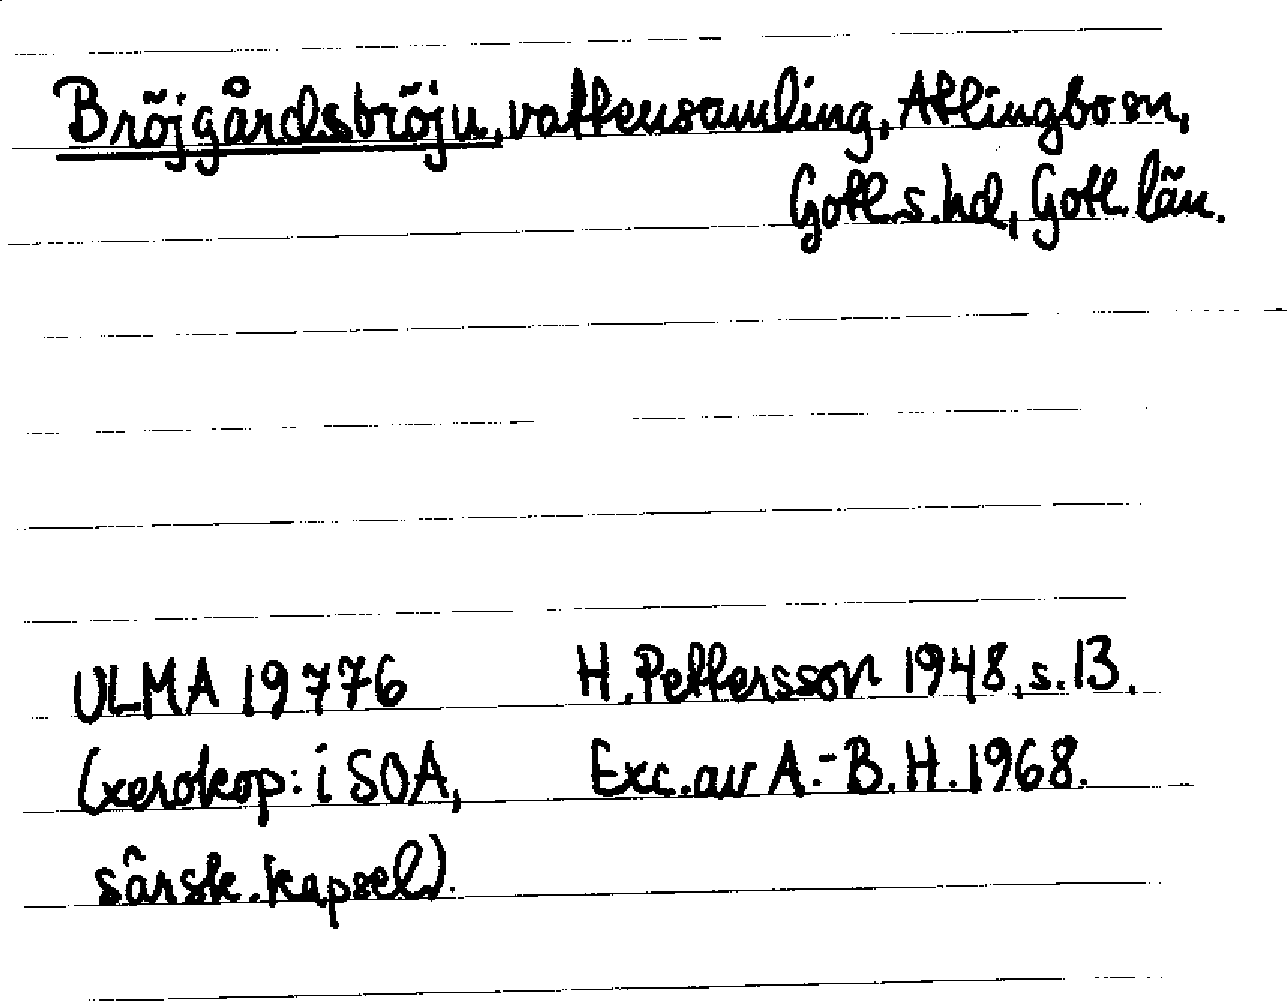 Bröjgårdsbröju, vattensamling, Atlingbo sn,
Gotl. s. hd, Gotl. län.
ULMA 19776 H. Pettersson 1948, s. 13.
(xerokop: i SOA, Exc. av A.-B. H. 1968.
särsk. kapsel).